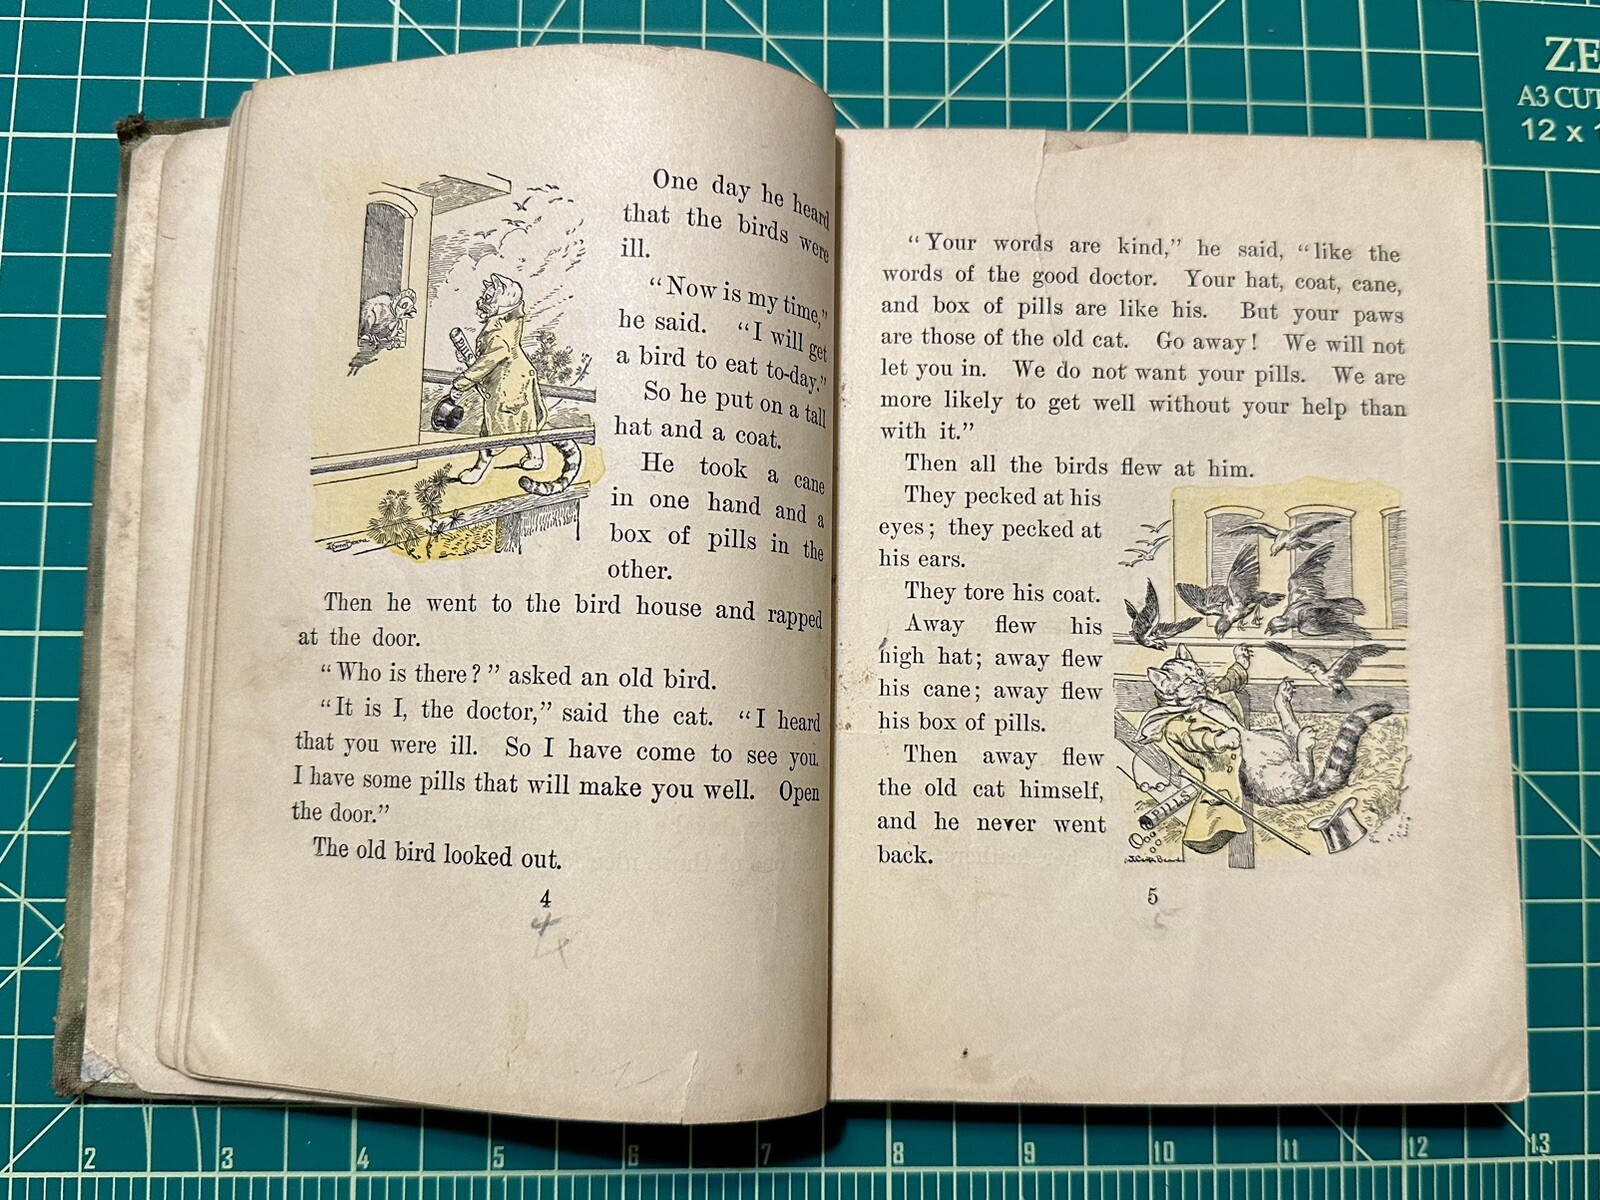 One day he heard
that the birds were
ill.
“Now is my time,”
he said. “I will get
a bird to eat to-day.”
So he put on a tall
hat and a coat.
He took a cane
in one hand and a
box of pills in the
other.
Then he went to the bird house and rapped
at the door.
“Who is there?” asked an old bird.
“It is I, the doctor,” said the cat. “I heard
that you were ill. So I have come to see you.
I have some pills that will make you well. Open
the door.”
The old bird looked out.
4
4
PILLS
“Your words are kind,” he said, “like the
words of the good doctor. Your hat, coat, cane,
and box of pills are like his. But your paws
are those of the old cat. Go away! We will not
let you in. We do not want your pills. We are
more likely to get well without your help than
with it.”
Then all the birds flew at him.
They pecked at his
eyes; they pecked at
his ears.
They tore his coat.
Away flew his
high hat; away flew
his cane; away flew
his box of pills.
Then away flew
the old cat himself,
and he never went
back.
PILLS
5
5
A3 CUT
12 x
2 3 4 5 6 7 8 9 10 11 12 13